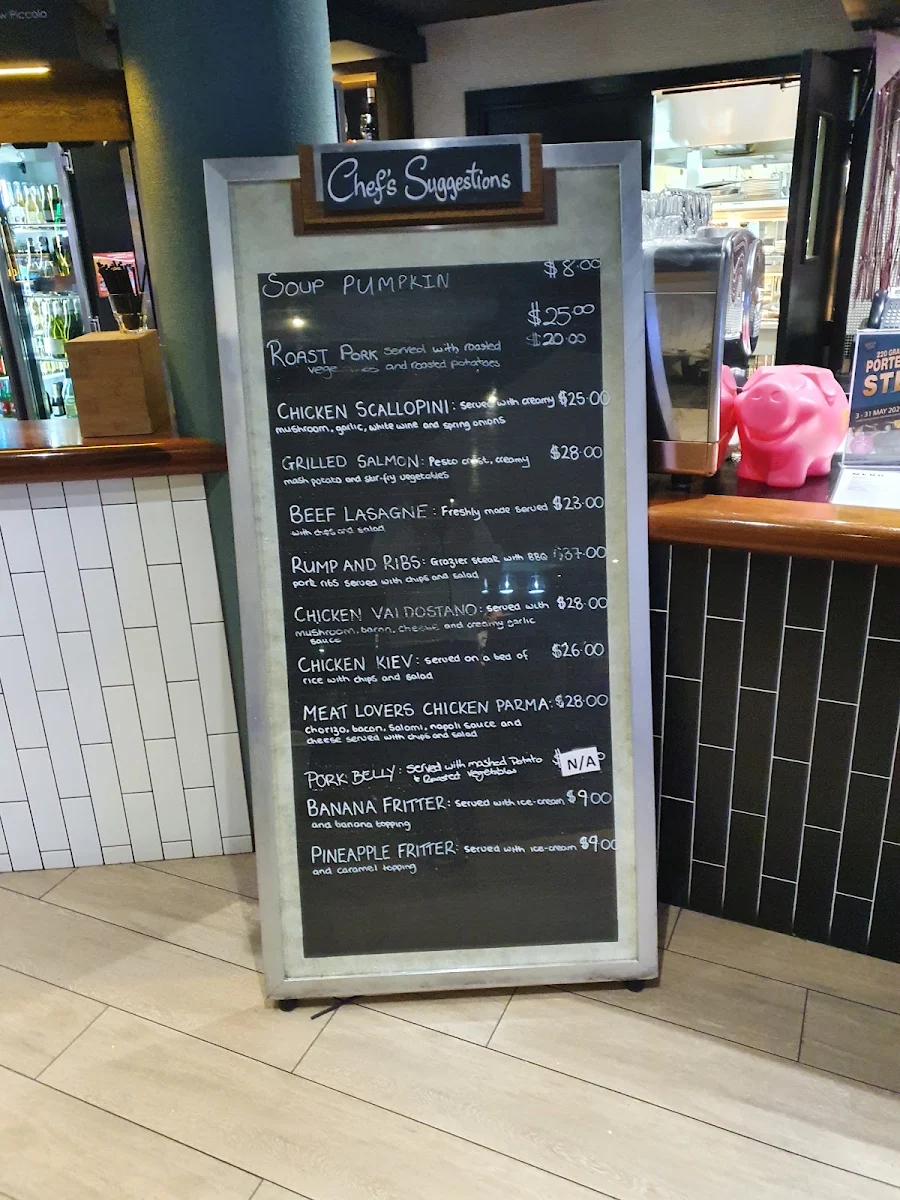 w Piccolo
Chef's Suggestions
SOUP PUMPKIN $8.00
$25.00
$20.00
ROAST PORK served with roasted
and roasted potatoes
CHICKEN SCALLOPINI: served with creamy $25.00
mushroom, garlic, white wine and spring onions
GRILLED SALMON: Pesto crust, creamy $28.00
mash potato and stir-fry vegetables
BEEF LASAGNE: Freshly made served $23.00
with chips and salad
RUMP AND RIBS: Grazier steak with BBQ $37.00
pork ribs served with chips and salad
CHICKEN VALDOSTANO: served with $28.00
mushroom, bacon, cheese and creamy garlic
sauce
CHICKEN KIEV: served on a bed of $26.00
rice with chips and salad
MEAT LOVERS CHICKEN PARMA: $28.00
chorizo, bacon, salami, napoli sauce and
cheese served with chips and salad
PORK BELLY: Served with mashed Potato $ N/A
+ Roasted Vegetables
BANANA FRITTER: served with ice-cream $9.00
and banana topping
PINEAPPLE FRITTER: served with ice-cream $9.00
and caramel topping
220 GRA
PORTE
ST
3 - 31 MAY 202
MENU